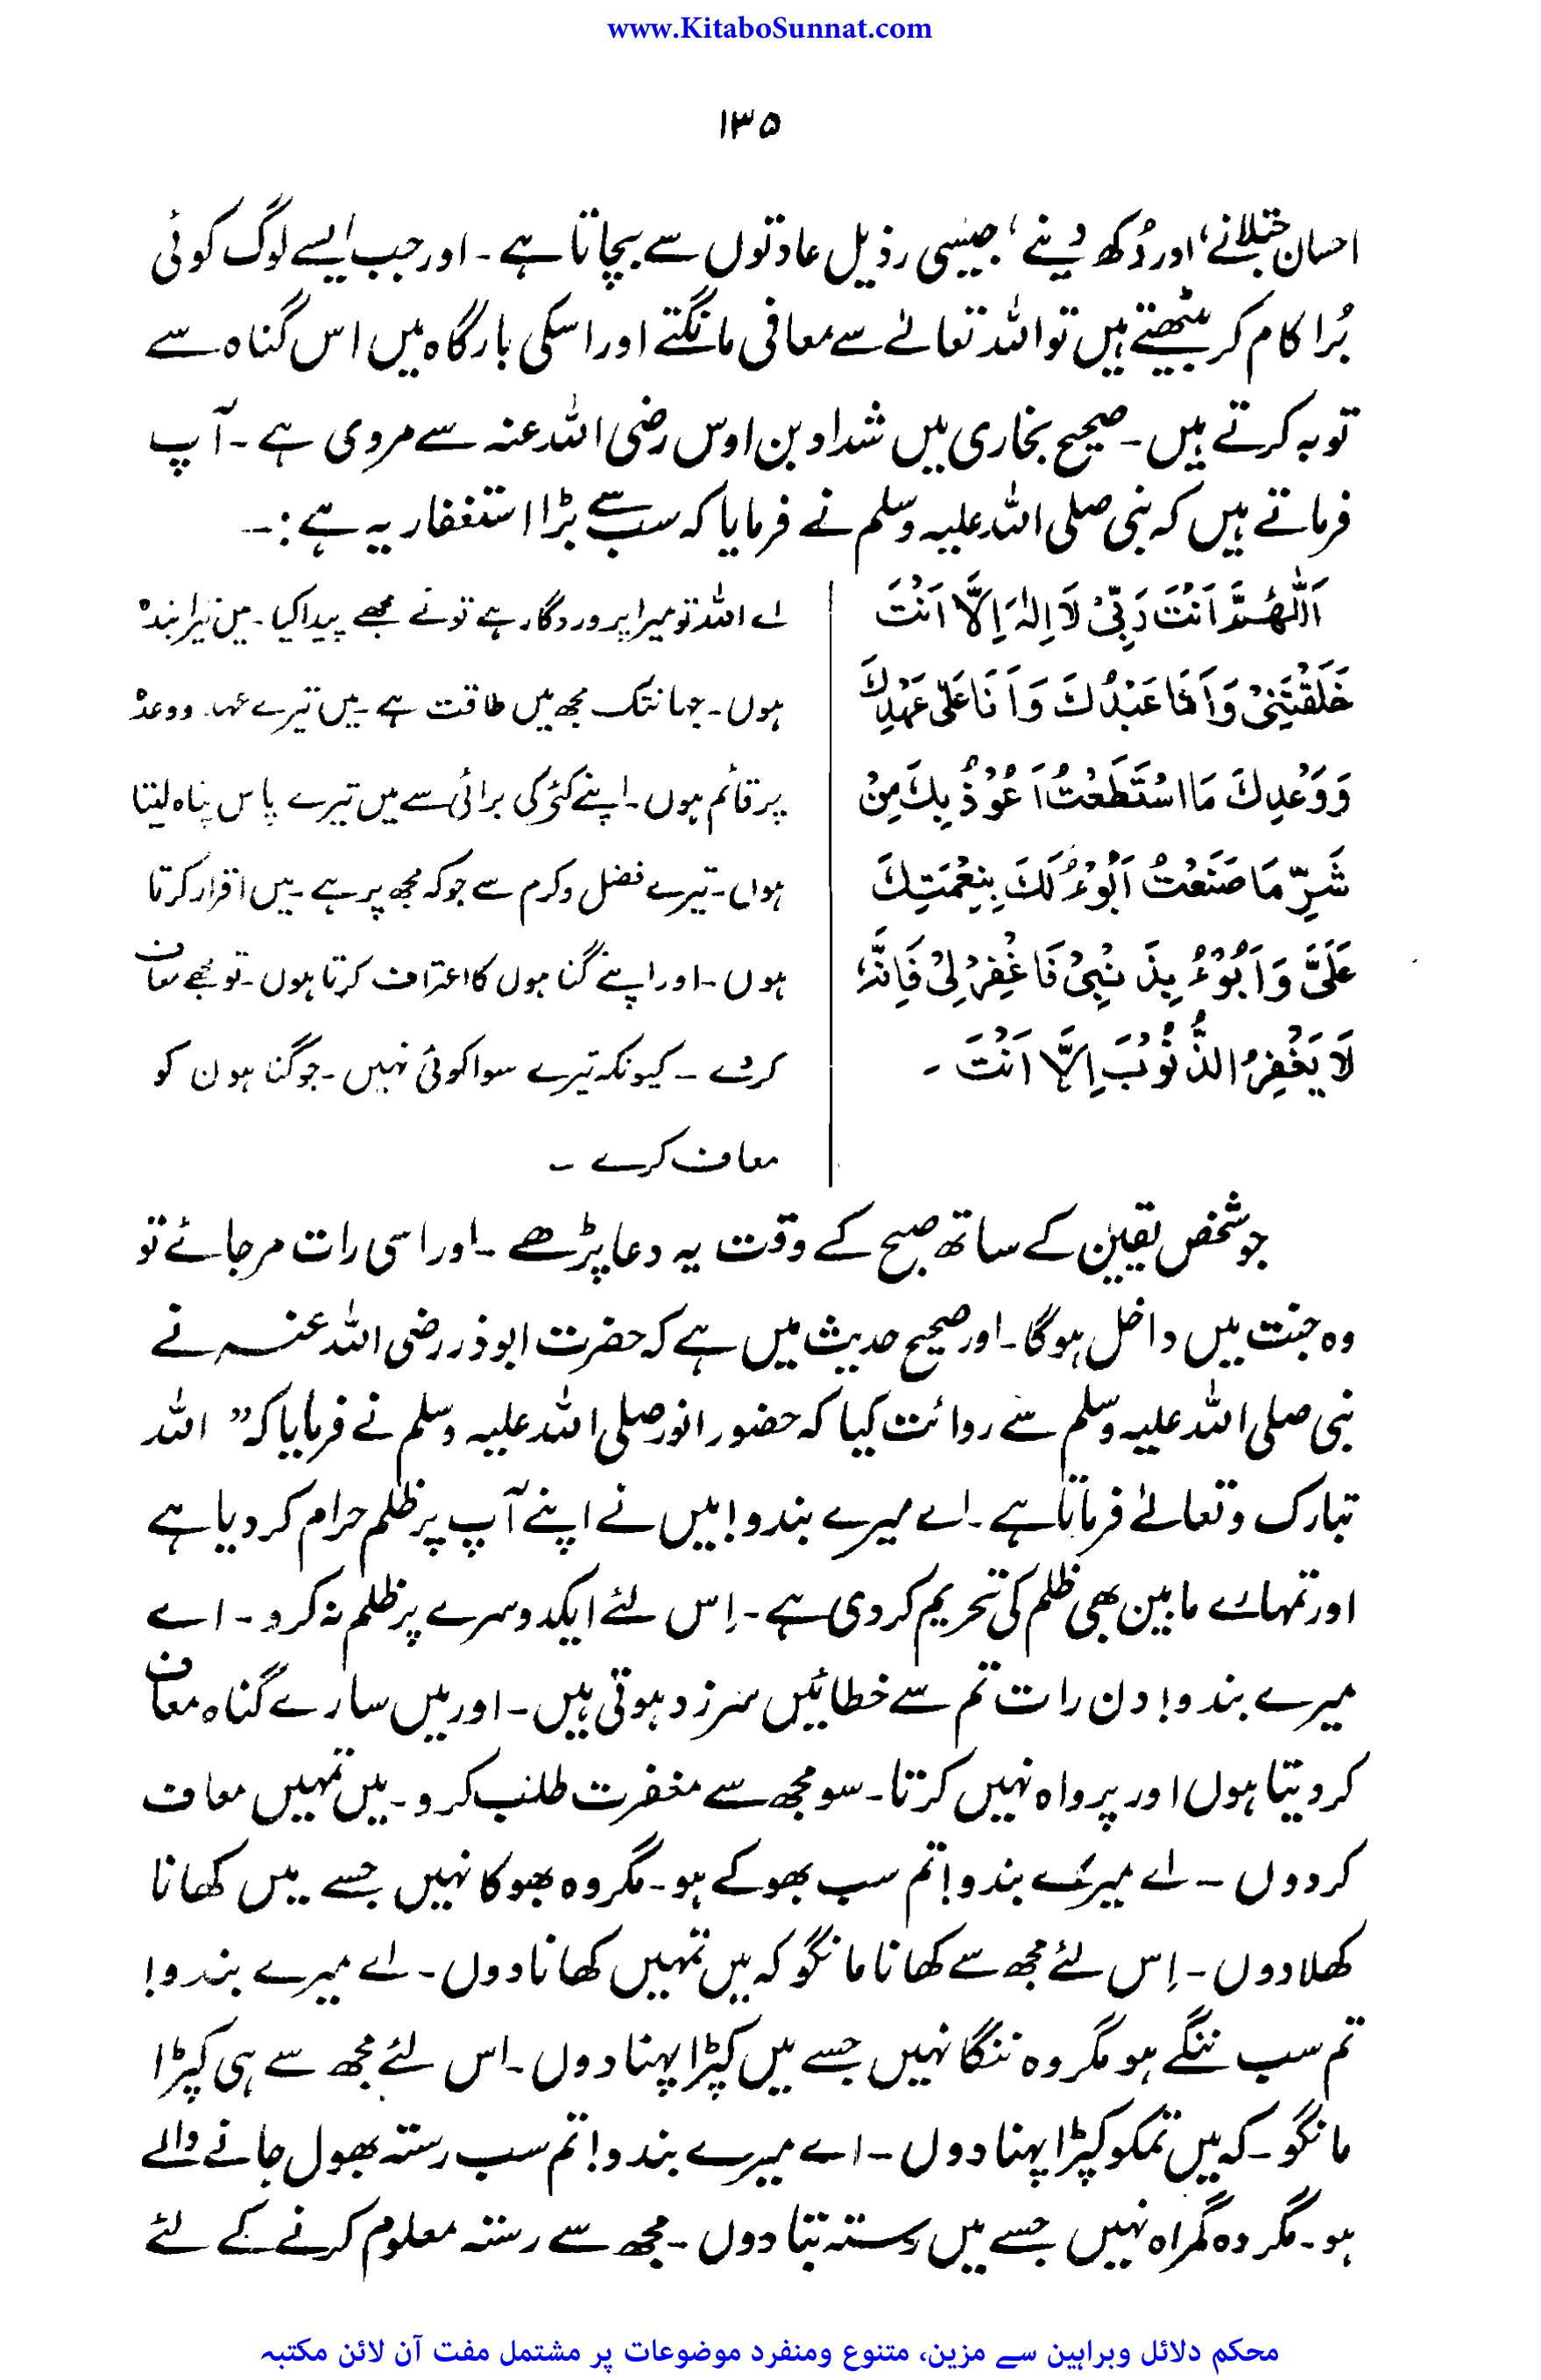 www.KitaboSunnat.com
۱۳۵
احسان جتلانے، اور دُکھ دینے، جیسی رذیل عادتوں سے بچاتا ہے۔ اور جب ایسے لوگ کوئی
بُرا کام کر بیٹھتے ہیں تو اللہ تعالےٰ سے معافی مانگتے اور اسکی بارگاہ میں اس گناہ سے
توبہ کرتے ہیں۔ صحیح بخاری میں شداد بن اوس رضی اللہ عنہ سے مروی ہے۔ آپ
فرماتے ہیں کہ نبی صلی اللہ علیہ وسلم نے فرمایا کہ سب سے بڑا استغفار یہ ہے :۔
اَللّٰهُمَّ اَنْتَ رَبِّیْ لَا اِلٰهَ اِلَّا اَنْتَ
خَلَقْتَنِیْ وَاَنَا عَبْدُكَ وَاَنَا عَلٰی عَهْدِكَ
وَوَعْدِكَ مَا اسْتَطَعْتُ اَعُوْذُ بِكَ مِنْ
شَرِّ مَا صَنَعْتُ اَبُوْءُ لَكَ بِنِعْمَتِكَ
عَلَیَّ وَاَبُوْءُ بِذَنْبِیْ فَاغْفِرْ لِیْ فَاِنَّهٗ
لَا یَغْفِرُ الذُّنُوْبَ اِلَّا اَنْتَ ۔
اے اللہ تو میرا پروردگار ہے تو نے مجھے پیدا کیا۔ میں تیرا بندہ
ہوں۔ جہانتک مجھ میں طاقت ہے۔ میں تیرے عہد و وعدہ
پر قائم ہوں۔ اپنے کئے کی برائی سے میں تیرے پاس پناہ لیتا
ہوں۔ تیرے فضل و کرم سے جو کہ مجھ پر ہے۔ میں اقرار کرتا
ہوں۔ اور اپنے گناہوں کا اعتراف کرتا ہوں۔ تو مجھے معاف
کر دے ۔ کیونکہ تیرے سوا کوئی نہیں۔ جو گناہوں کو
معاف کرے ۔
جو شخص یقین کے ساتھ صبح کے وقت یہ دعا پڑھے ۔ اور اسی رات مر جائے تو
وہ جنت میں داخل ہوگا۔ اور صحیح حدیث میں ہے کہ حضرت ابوذر رضی اللہ عنہ نے
نبی صلی اللہ علیہ وسلم سے روائت کیا کہ حضور انور صلی اللہ علیہ وسلم نے فرمایا کہ ” اللہ
تبارک و تعالےٰ فرماتا ہے۔ اے میرے بندو! میں نے اپنے آپ پر ظلم حرام کر دیا ہے
اور تمہارے مابین بھی ظلم کی تحریم کر دی ہے۔ اِس لئے ایکدوسرے پر ظلم نہ کرو۔ اے
میرے بندو! دن رات تم سے خطائیں سرزد ہوتی ہیں۔ اور میں سارے گناہ معاف
کر دیتا ہوں اور پرواہ نہیں کرتا۔ سو مجھ سے مغفرت طلب کرو۔ میں تمہیں معاف
کر دوں ۔ اے میرے بندو! تم سب بھوکے ہو۔ مگر وہ بھوکا نہیں جسے میں کھانا
کھلا دوں۔ اِس لئے مجھ سے کھانا مانگو کہ میں تمہیں کھانا دوں۔ اے میرے بندو!
تم سب ننگے ہو مگر وہ ننگا نہیں جسے میں کپڑا پہنا دوں۔ اس لئے مجھ سے ہی کپڑا
مانگو۔ کہ میں تمکو کپڑا پہنا دوں ۔ اے میرے بندو! تم سب رستہ بھول جانے والے
ہو۔ مگر وہ گمراہ نہیں جسے میں رستہ بتا دوں ۔ مجھ سے رستہ معلوم کرنے کے لئے
محکم دلائل وبراہین سے مزین، متنوع ومنفرد موضوعات پر مشتمل مفت آن لائن مکتبہ